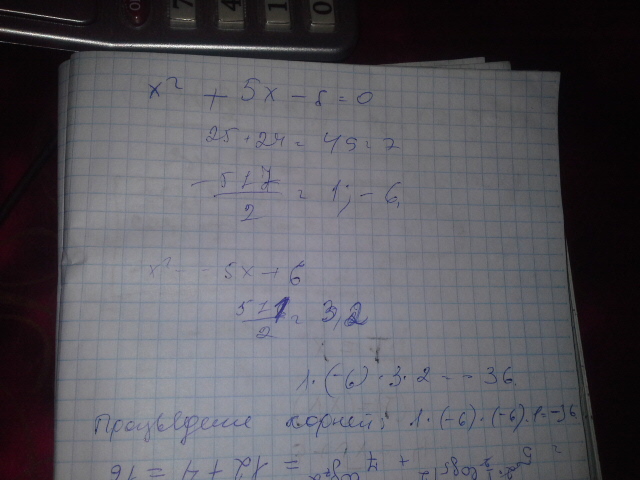 7 4 1 0
x² + 5x - 6 = 0
25 + 24 = 49 = 7
(-5 ± 7)/2 = 1; -6
x² - 5x + 6
(5 ± 1)/2 = 3, 2
1·(-6)·3·2 = -36
Произведение корней: 1·(-6)·(-6)·1 = -36
= 12 + 4 = 16